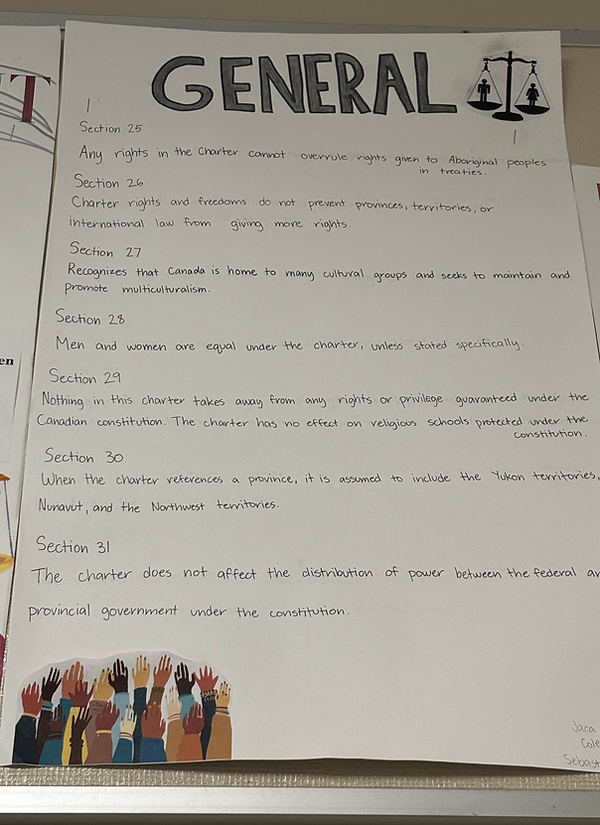 GENERAL
Section 25
Any rights in the Charter cannot overrule rights given to Aboriginal peoples
in treaties.
Section 26
Charter rights and freedoms do not prevent provinces, territories, or
international law from giving more rights.
Section 27
Recognizes that Canada is home to many cultural groups and seeks to maintain and
promote multiculturalism.
Section 28
Men and women are equal under the charter, unless stated specifically.
Section 29
Nothing in this charter takes away from any rights or privilege guaranteed under the
Canadian constitution. The charter has no effect on religious schools protected under the
constitution.
Section 30
When the charter references a province, it is assumed to include the Yukon territories,
Nunavut, and the Northwest territories.
Section 31
The charter does not affect the distribution of power between the federal
provincial government under the constitution.